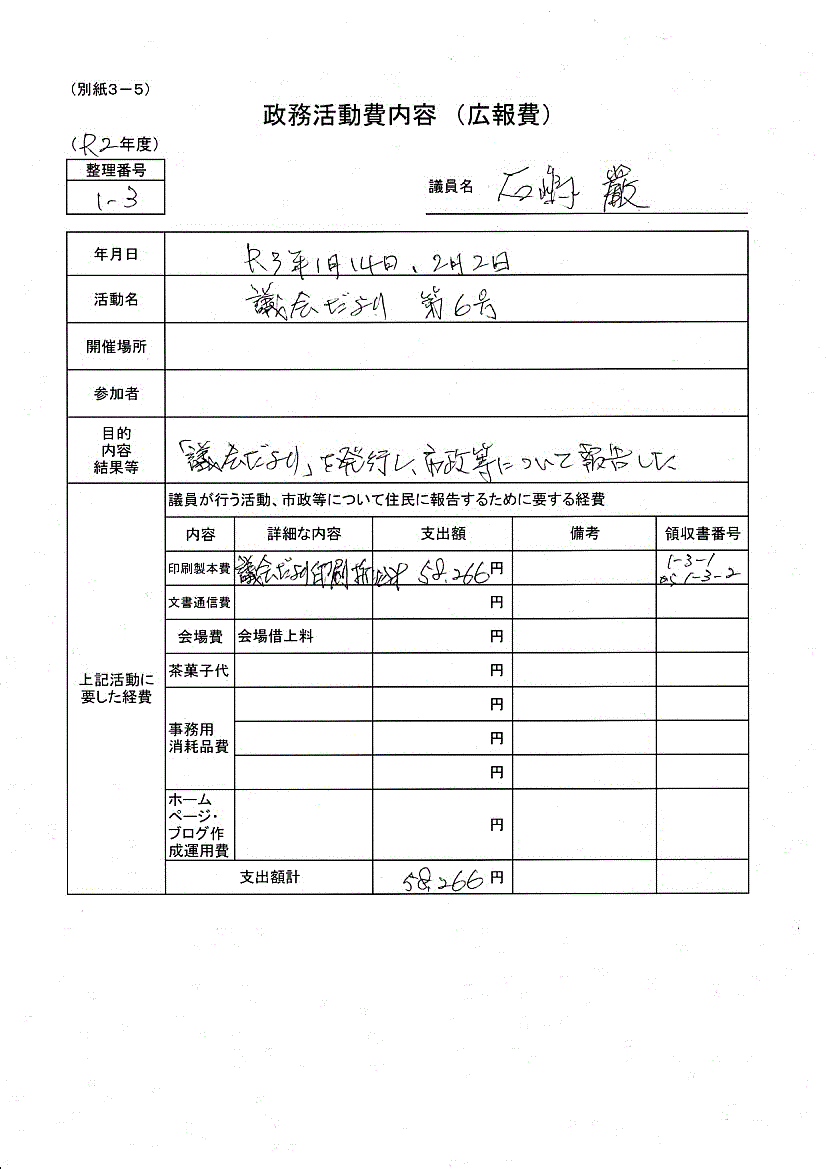 （別紙３－５）
政務活動費内容 （広報費）
（R2年度）
整理番号
1-3
議員名 石峰 巌
年月日 R3年1月14日、2月2日
活動名 議会だより 第6号
開催場所
参加者
目的
内容
結果等
「議会だより」を発行し、市政等について報告した
上記活動に
要した経費
議員が行う活動、市政等について住民に報告するために要する経費
内容 詳細な内容 支出額 備考 領収書番号
印刷製本費 議会だより印刷 58,266円 1-3-1
から 1-3-2
文書通信費 円
会場費 会場借上料 円
茶菓子代 円
事務用
消耗品費
円
円
円
ホーム
ページ・
ブログ作
成運用費
円
支出額計 58,266円